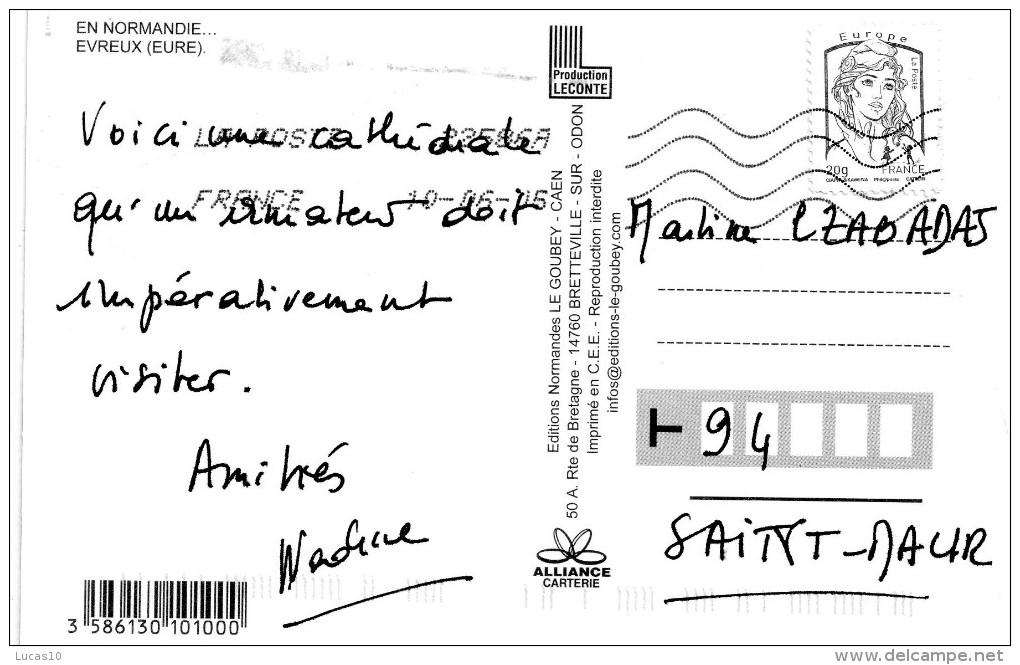 EN NORMANDIE...
EVREUX (EURE).
Voici une cathédrale
qu'un amateur doit
impérativement
visiter.
Amitiés
Nadine
3 586130 101000
LA POSTE
FRANCE 10-06-
Production
LECONTE
Editions Normandes LE GOUBEY - CAEN
50 A. Rte de Bretagne - 14760 BRETTEVILLE - SUR - ODON
Imprimé en C.E.E. - Reproduction interdite
infos@editions-le-goubey.com
ALLIANCE
CARTERIE
Europe
La Poste
20g
FRANCE
Martine
T 94
SAINT-MAUR
Lucas10
www.delcampe.net